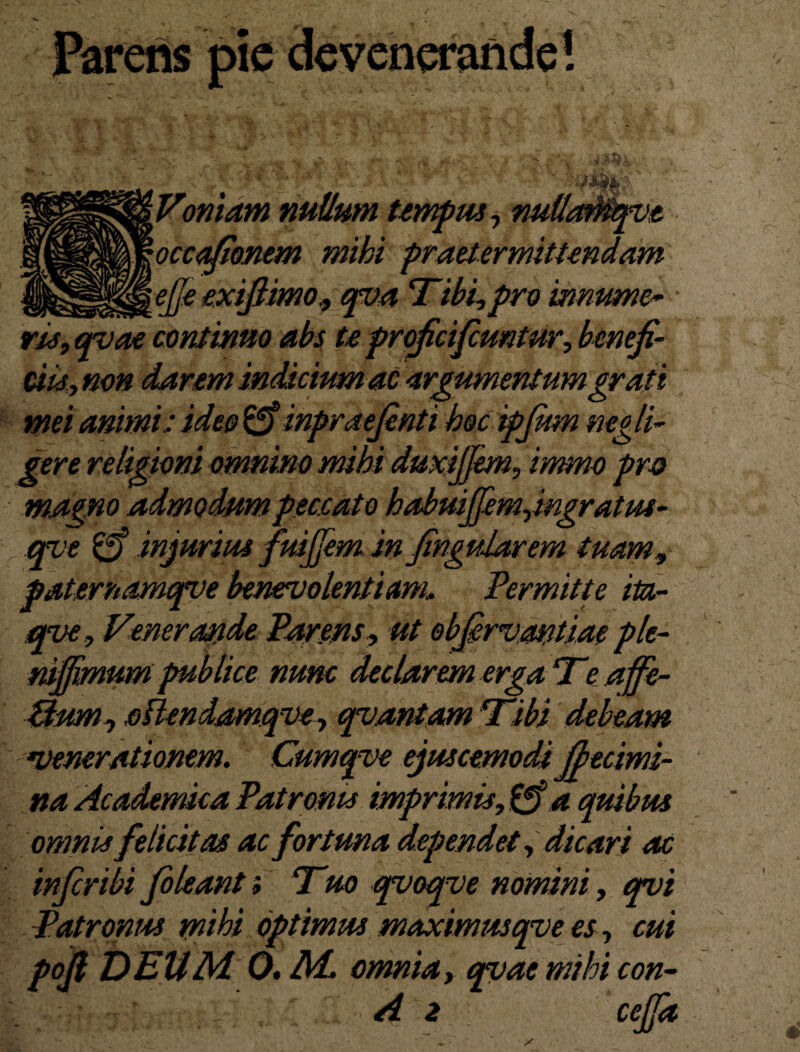 Parens pie devenerande!
QVoniam nullum tempus, nullamqve
occaſionem mihi praetermittendam
eſſe exiſtimo, qva Tibi, pro innume-
ris, qvae continuo abs te proficiſcuntur, benefi-
ciis, non darem indicium ac argumentum grati
mei animi: ideo & inpraeſenti hoc ipſum negli-
gere religioni omnino mihi duxiſſem, immo pro
magno admodum peccato habuiſſem, ingratus-
qve & injurius fuiſſem in ſingularem tuam,
paternamqve benevolentiam. Permitte ita-
qve, Venerande Parens, ut obſervantiae ple-
niſſimum publice nunc declarem erga Te affe-
ctum, oſtendamqve, qvantam Tibi debeam
venerationem. Cumqve ejuscemodi ſpecimi-
na Academica Patronis imprimis, & a quibus
omnis felicitas ac fortuna dependet, dicari ac
inſcribi ſoleant; Tuo qvoqve nomini, qvi
Patronus mihi optimus maximusqve es, cui
poſt DEUM O. M. omnia, qvae mihi con-
A 2 ceſſa